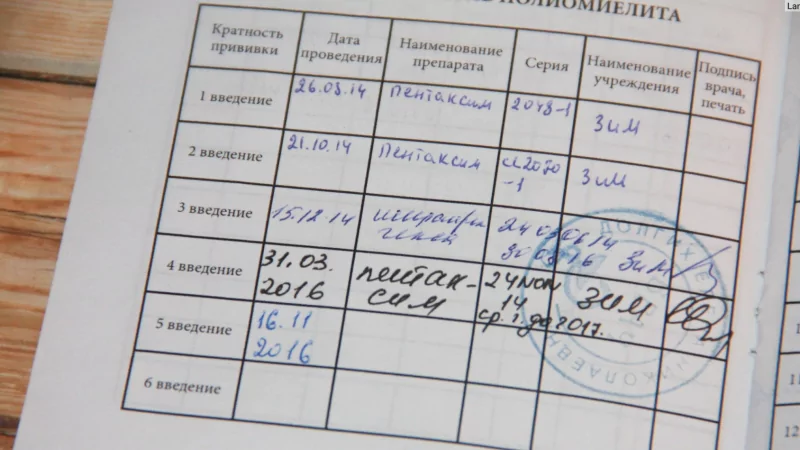 ПОЛИОМИЕЛИТА
Кратность прививки Дата проведения Наименование препарата Серия Наименование учреждения Подпись врача, печать
1 введение 26.08.14 Пентаксим 2048-1 ЗиМ
2 введение 21.10.14 Пентаксим 2070-1 ЗиМ
3 введение 15.12.14 ЗиМ
4 введение 31.03.2016 пентаксим 14 2017. ЗИМ
5 введение 16.11 2016
6 введение
ДОЛГИХ
НИКОЛАЕВН
11
12
Lar